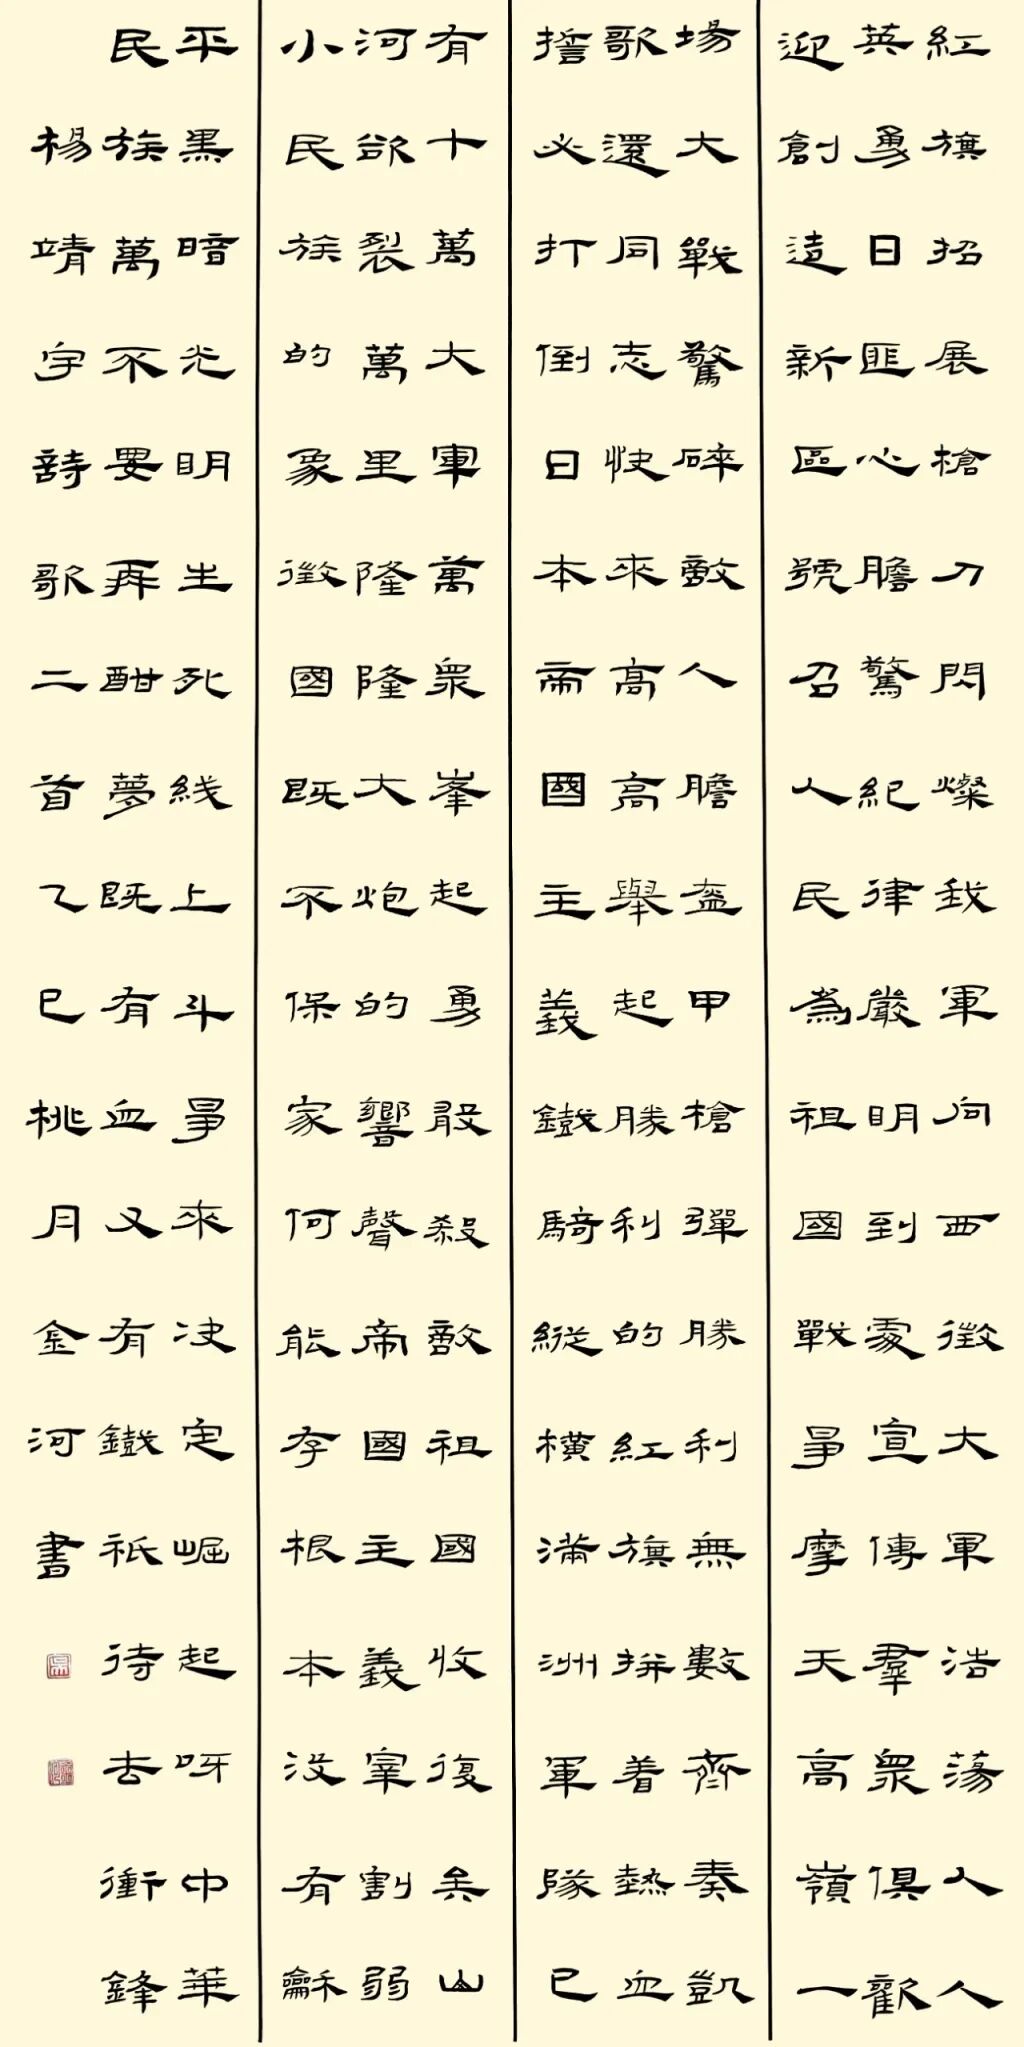 紅旗招展槍刀閃燦我軍向西徵大軍浩蕩人人
英勇日匪心膽驚紀律嚴明到處宣傳羣眾俱歡
迎創造新區號召人民為祖國戰爭摩天高嶺一
場大戰驚碎敵人膽盔甲槍彈勝利無數齊奏凱
歌還同志快來高高舉起勝利的紅旗拼着熱血
誓必打倒日本帝國主義鐵騎縱橫滿洲軍隊已
有十萬大軍萬眾峯起勇敢殺敵祖國收復矣山
河欲裂萬里隆隆大炮的響聲帝國主義宰割弱
小民族的象徵國既不保家何能存根本沒有龢
平黑暗光明生死线上斗爭來决定崛起呀中華
民族萬不要再酣夢既有血又有鐵祇待去衝鋒
楊靖宇詩歌二首乙巳桃月金河書